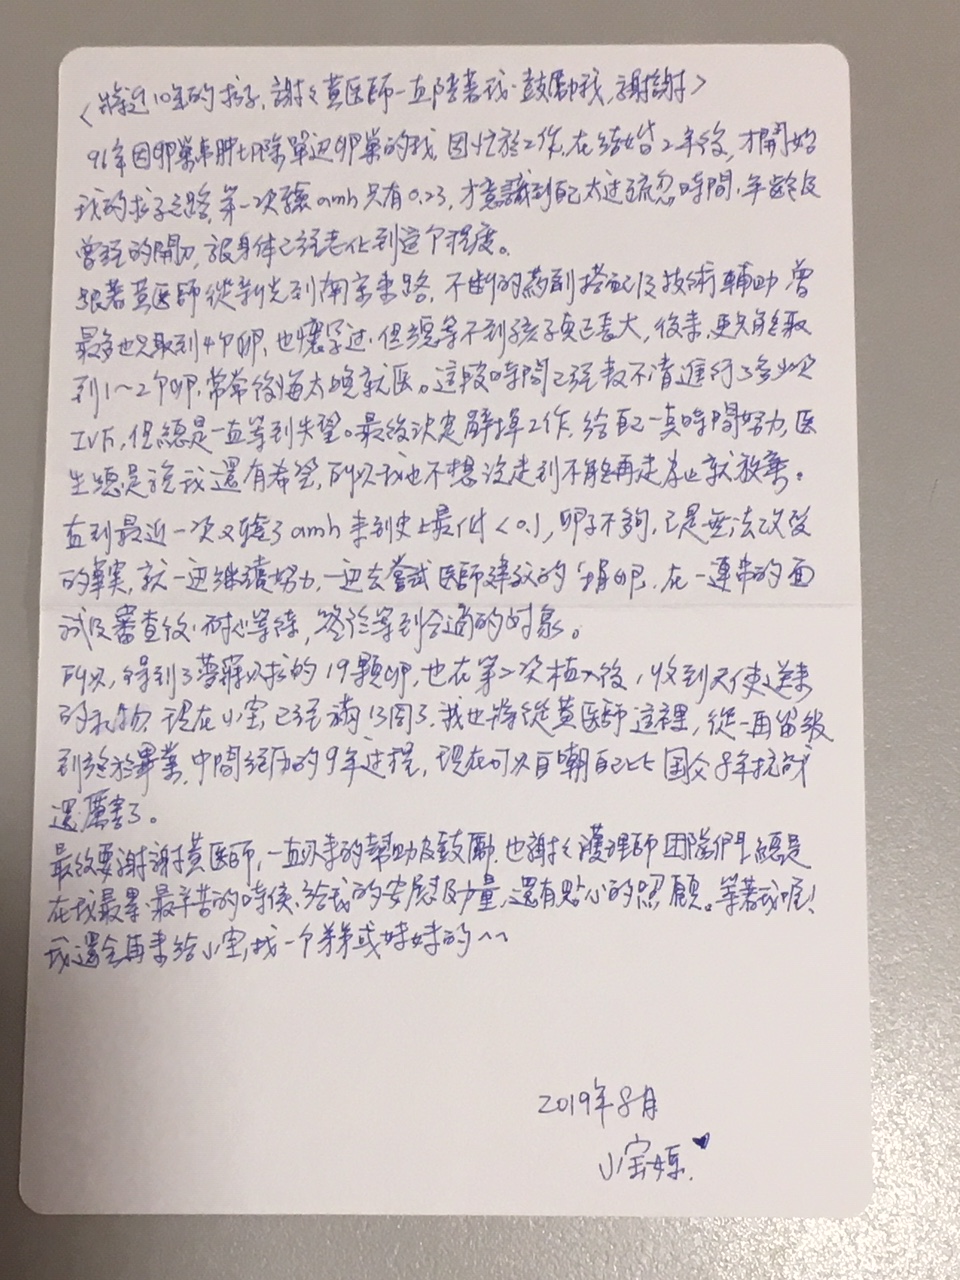 <將近10年的求子,謝謝黃医師一直陪著我、鼓勵我,謝謝>
96年因卵巢水肿切除單边卵巢的我,因忙於工作,在結婚2年後,才開始
我的求子之路,第一次驗amh只有0.23,才意識到自己太过疏忽時間、年齡及
曾經的開刀,讓身体已經老化到這个程度。
跟著黃医師從新光到南京東路,不断的药劑搭配及技術輔助,曾
最多也只取到4个卵,也懷孕过,但總等不到孩子真正長大,後來,更只能取
到1~2个卵,常常後悔太晚就医。這段時間已經數不清進行了多少次
IVF,但總是一直等到失望。最後決定辭掉工作,給自己一点時間努力,医
生總是說我還有希望,所以我也不想沒走到不能再走為止就放棄。
直到最近一次又驗了amh來到史上最低<0.1,卵子不夠,已是無法改变
的事实,就一边繼續努力,一边去嘗試医師建议的捐卵,在一連串的面
試及審查後,耐心等待,終於等到合適的对象。
所以,得到了夢寐以求的19顆卵,也在第二次植入後,收到天使送來
的礼物,現在小宝已經滿13周了,我也將從黃医師這裡,從一再留級
到終於畢業,中間經历的9年过程,現在可以自嘲自己比国父8年抗战
還厲害了。
最後要謝謝黃医師,一直以來的幫助及鼓勵,也謝謝護理師團隊們,總是
在我最累、最辛苦的時候,給我的安慰及力量,還有貼心的照顧。等著我喔!
我還会再來給小宝找一个弟弟或妹妹的^^
2019年8月
小宝媽.